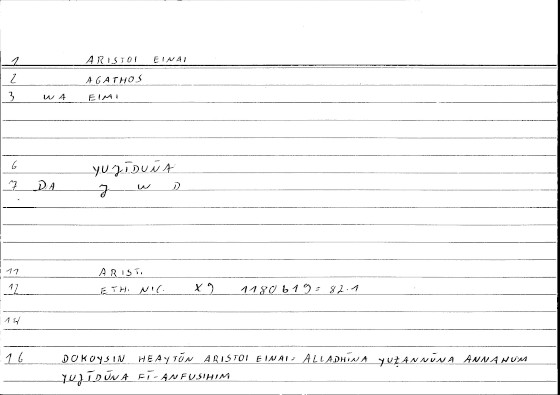 1 ARISTOI EINAI
2 AGATHOS
3 WA EIMI
6 YUǦĪDŪNA
7 DA Ǧ W D
11 ARIST.
12 ETH. NIC. X9 1180b19 = 82.1
14
16 DOKOYSIN HEAYTŌN ARISTOI EINAI - ALLADHĪNA YUẒANNŪNA ANNAHUM
YUǦĪDŪNA FĪ-ANFUSIHIM